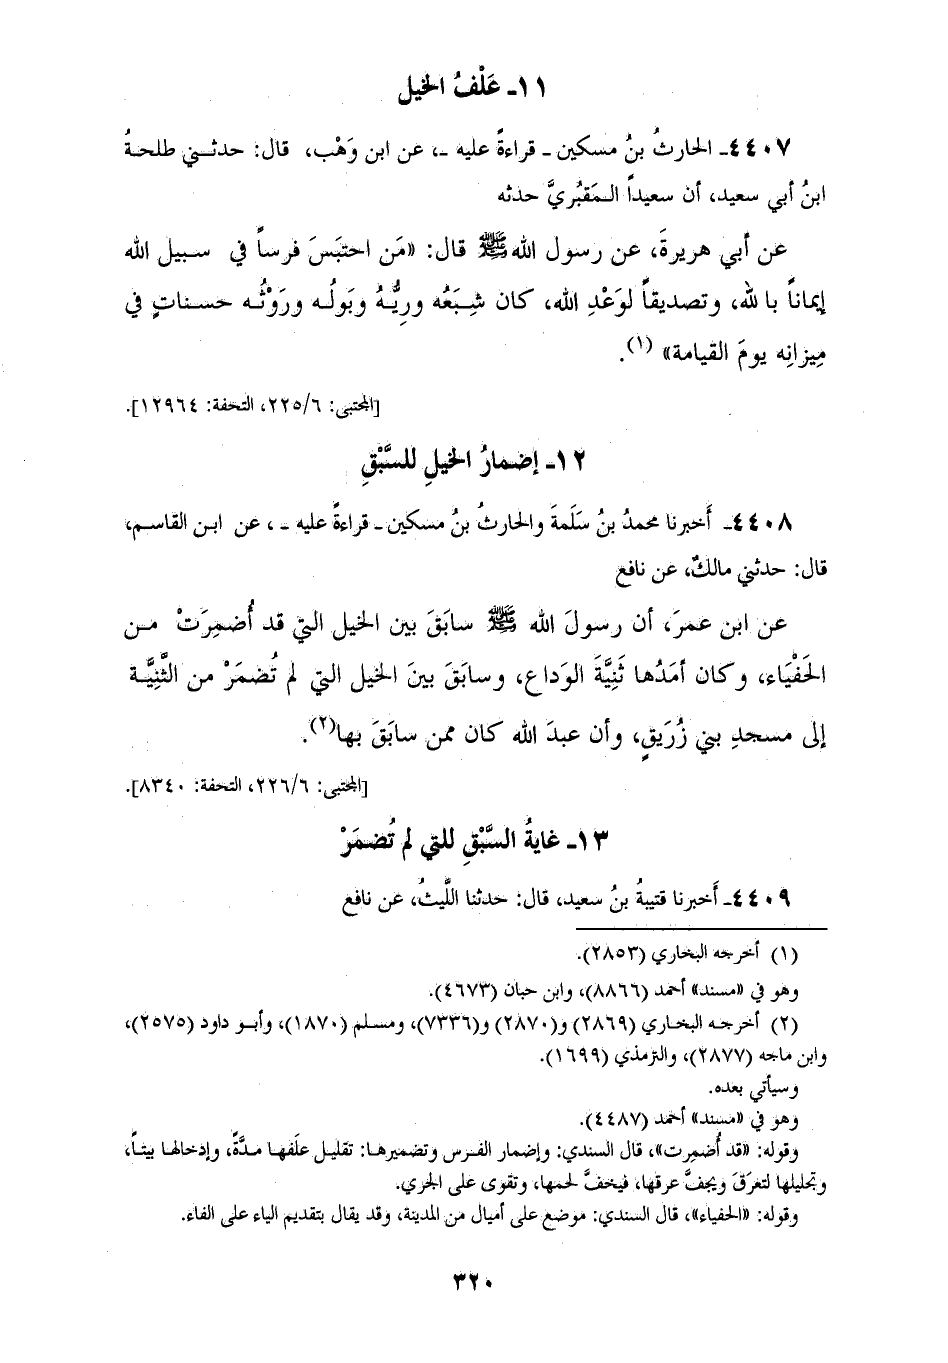 ١١- عَلْفُ الخيل
٤٤٠٧- الحارثُ بنُ مسكين - قراءةً عليه -، عن ابن وَهْب، قال: حدثني طلحةُ
ابنُ أبي سعيد، أن سعيداً المَقبُريَّ حدثه
عن أبي هريرةَ، عن رسول الله ﷺ قال: «مَن احتبَسَ فرساً في سبيل الله
إيماناً بالله، وتصديقاً لوَعْدِ الله، كان شِبَعُه ورِيُّهُ وبَولُه ورَوْثُه حسناتٍ في
مِيزانِه يومَ القيامة» (١).
[المجتبى: ٢٢٥/٦، التحفة: ١٢٩٦٤].
١٢- إضمارُ الخيلِ للسَّبْقِ
٤٤٠٨- أَخبرنا محمدُ بنُ سَلَمةَ والحارثُ بنُ مسكين - قراءةً عليه -، عن ابن القاسم،
قال: حدثني مالكٌ، عن نافع
عن ابن عمرَ، أن رسولَ الله ﷺ سابَقَ بين الخيل التي قد أُضمِرَتْ من
الحَفْيَاء، وكان أمَدُها ثَنِيَّةَ الوَداع، وسابَقَ بينَ الخيل التي لم تُضمَرْ من الثَّنِيَّة
إلى مسجدِ بني زُرَيقٍ، وأن عبدَ الله كان ممن سابَقَ بها(٢).
[المجتبى: ٢٢٦/٦، التحفة: ٨٣٤٠].
١٣- غايةُ السَّبْقِ للتي لم تُضمَرْ
٤٤٠٩- أَخبرنا قتيبةُ بنُ سعيد، قال: حدثنا اللَّيثُ، عن نافع
(١) أخرجه البخاري (٢٨٥٣).
وهو في «مسند» أحمد (٨٨٦٦)، وابن حبان (٤٦٧٣).
(٢) أخرجه البخاري (٢٨٦٩) و(٢٨٧٠) و(٧٣٣٦)، ومسلم (١٨٧٠)، وأبو داود (٢٥٧٥)،
وابن ماجه (٢٨٧٧)، والترمذي (١٦٩٩).
وسيأتي بعده.
وهو في «مسند» أحمد (٤٤٨٧).
وقوله: «قد أُضمِرت»، قال السندي: وإضمار الفرس وتضميرها: تقليل علَفها مدَّةً، وإدخالها بيتاً،
وتجليلها لتعرَقَ ويجفَّ عرقها، فيخفَّ لحمها، وتقوى على الجري.
وقوله: «الحفياء»، قال السندي: موضع على أميال من المدينة، وقد يقال بتقديم الياء على الفاء.
٣٢٠